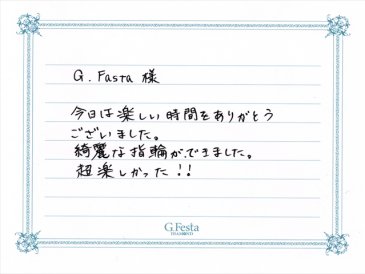 G.Fasta 様
今日は楽しい時間をありがとう
ございました。
綺麗な指輪ができました。
超楽しかった!!
G.Festa
DIAMOND